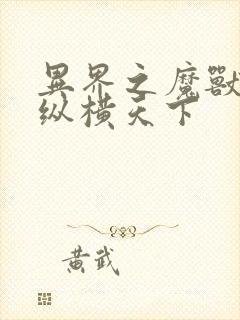 異界之魔獸
纵横天下
黄武